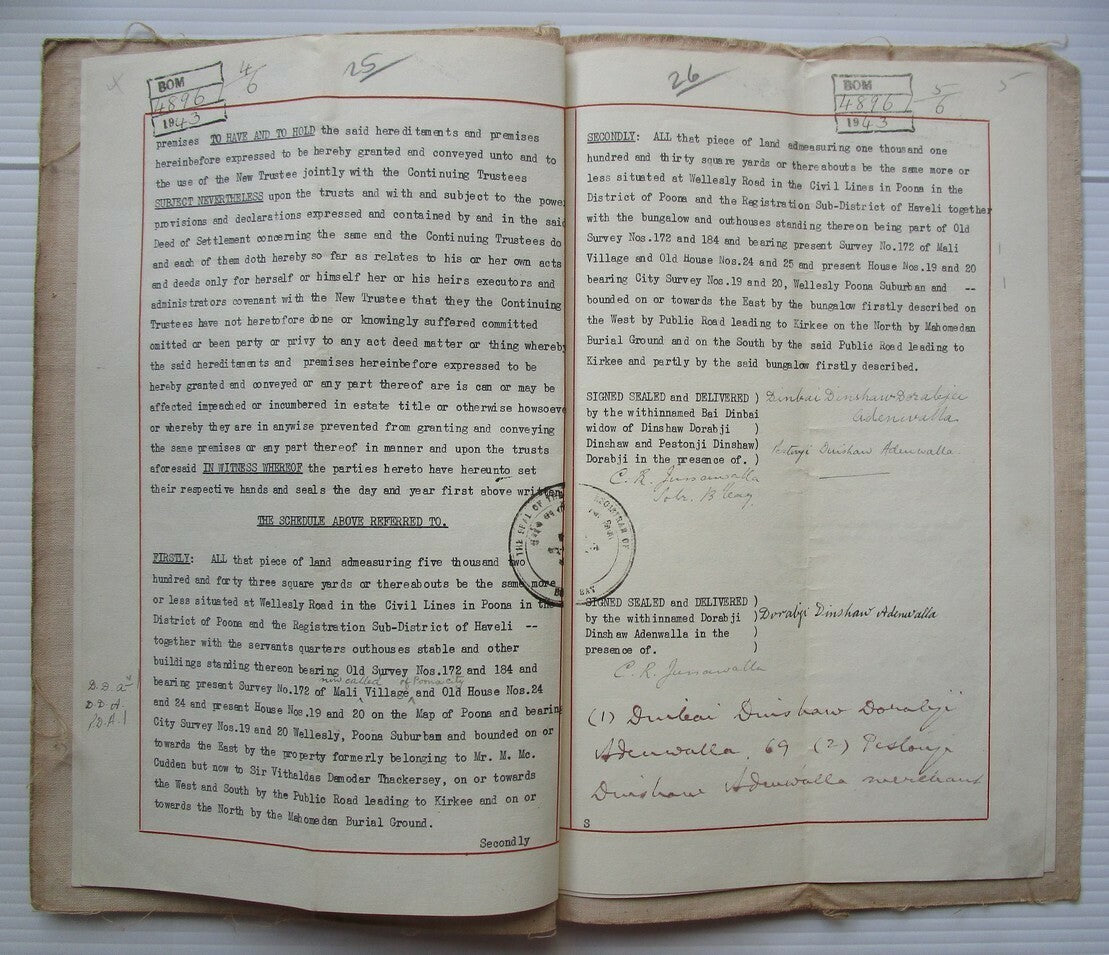 25
4/6
BOM
4896
1943
premises TO HAVE AND TO HOLD the said hereditaments and premises
hereinbefore expressed to be hereby granted and conveyed unto and to
the use of the New Trustee jointly with the Continuing Trustees
SUBJECT NEVERTHELESS upon the trusts and with and subject to the powe
provisions and declarations expressed and contained by and in the said
Deed of Settlement concerning the same and the Continuing Trustees do
and each of them doth hereby so far as relates to his or her own acts
and deeds only for herself or himself her or his heirs executors and
administrators covenant with the New Trustee that they the Continuing
Trustees have not heretofore done or knowingly suffered committed
omitted or been party or privy to any act deed matter or thing whereby
the said hereditaments and premises hereinbefore expressed to be
hereby granted and conveyed or any part thereof are is can or may be
affected impeached or incumbered in estate title or otherwise howsoeve
or whereby they are in anywise prevented from granting and conveying
the same premises or any part thereof in manner and upon the trusts
aforesaid IN WITNESS WHEREOF the parties hereto have hereunto set
their respective hands and seals the day and year first above written
THE SCHEDULE ABOVE REFERRED TO.
FIRSTLY: ALL that piece of land admeasuring five thousand two
hundred and forty three square yards or thereabouts be the same more
or less situated at Wellesly Road in the Civil Lines in Poona in the
District of Poona and the Registration Sub-District of Haveli --
together with the servants quarters outhouses stable and other
buildings standing thereon bearing Old Survey Nos.172 and 184 and
now called of Poona city
bearing present Survey No.172 of Mali Village and Old House Nos.24
and 24 and present House Nos.19 and 20 on the Map of Poona and bearing
City Survey Nos.19 and 20 Wellesly, Poona Suburban and bounded on or
towards the East by the property formerly belonging to Mr. M. Mc.
Cudden but now to Sir Vithaldas Damodar Thackersey, on or towards
the West and South by the Public Road leading to Kirkee and on or
towards the North by the Mahomedan Burial Ground.
Secondly
D.D.A
D.D.A.
P.D.A.
26
5/6
5
BOM
4896
1943
SECONDLY: ALL that piece of land admeasuring one thousand one
hundred and thirty square yards or thereabouts be the same more or
less situated at Wellesly Road in the Civil Lines in Poona in the
District of Poona and the Registration Sub-District of Haveli together
with the bungalow and outhouses standing thereon being part of Old
Survey Nos.172 and 184 and bearing present Survey No.172 of Mali
Village and Old House Nos.24 and 25 and present House Nos.19 and 20
bearing City Survey Nos.19 and 20, Wellesly Poona Suburban and --
bounded on or towards the East by the bungalow firstly described on
the West by Public Road leading to Kirkee on the North by Mahomedan
Burial Ground and on the South by the said Public Road leading to
Kirkee and partly by the said bungalow firstly described.
SIGNED SEALED and DELIVERED ) Dinbai Dinshaw Dorabji
by the withinnamed Bai Dinbai ) Adenwalla
widow of Dinshaw Dorabji )
Dinshaw and Pestonji Dinshaw) Pestonji Dinshaw Adenwalla
Dorabji in the presence of. )
C. R. Jussawalla
Solr. Bombay
THE SEAL OF THE REGISTRAR OF BOMBAY
SIGNED SEALED and DELIVERED )
by the withinnamed Dorabji ) Dorabji Dinshaw Adenwalla
Dinshaw Adenwalla in the )
presence of. )
C. R. Jussawalla
(1) Dinbai Dinshaw Dorabji
Adenwalla 69 (2) Pestonji
Dinshaw Adenwalla merchant
S